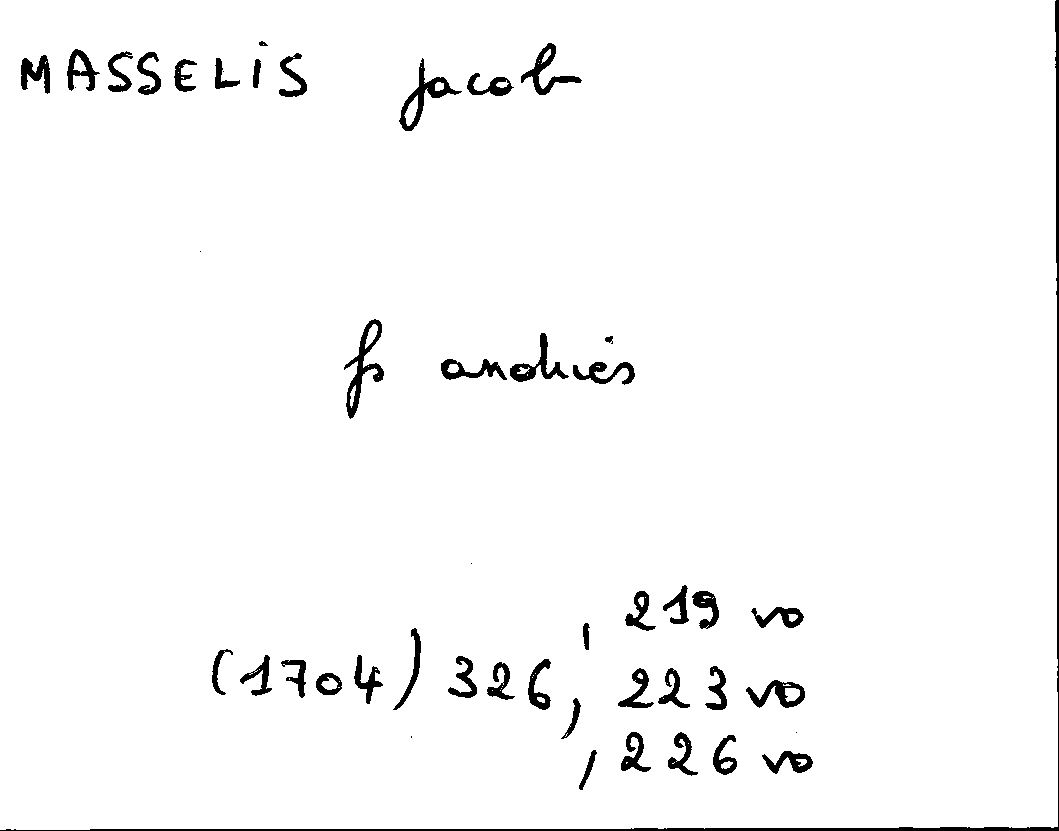 MASSELIS Jacob
fs andries
, 219 vo
(1704) 326, 223 vo
, 226 vo